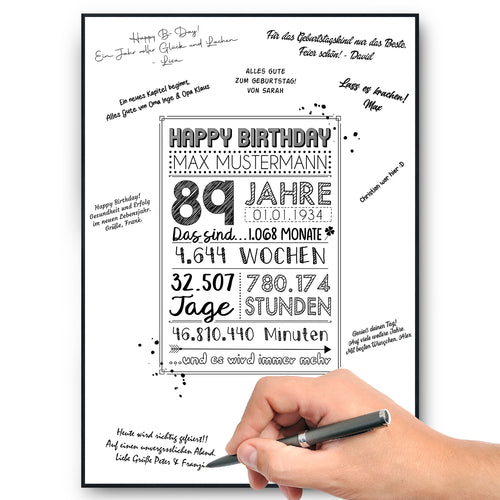 Happy B-Day!
Ein Jahr voller Glück und Lachen
- Lisa
Für das Geburtstagskind nur das Beste.
Feier schön! - David
ALLES GUTE
ZUM GEBURTSTAG!
VON SARAH
Ein neues Kapitel beginnt,
Alles Gute von Oma Inge & Opa Klaus
Lass es krachen!
Max
Christian war hier :D
HAPPY BIRTHDAY
MAX MUSTERMANN
89 JAHRE
01.01.1934
Das sind... 1.068 MONATE
4.644 WOCHEN
32.507 Tage
780.174 STUNDEN
46.810.440 Minuten
...und es wird immer mehr
Happy Birthday!
Gesundheit und Erfolg
im neuen Lebensjahr.
Grüße, Frank.
Genieß deinen Tag!
Auf viele weitere Jahre.
Mit besten Wünschen, Alex
Heute wird richtig gefeiert!!
Auf einen unvergesslichen Abend.
Liebe Grüße Peter & Franzi